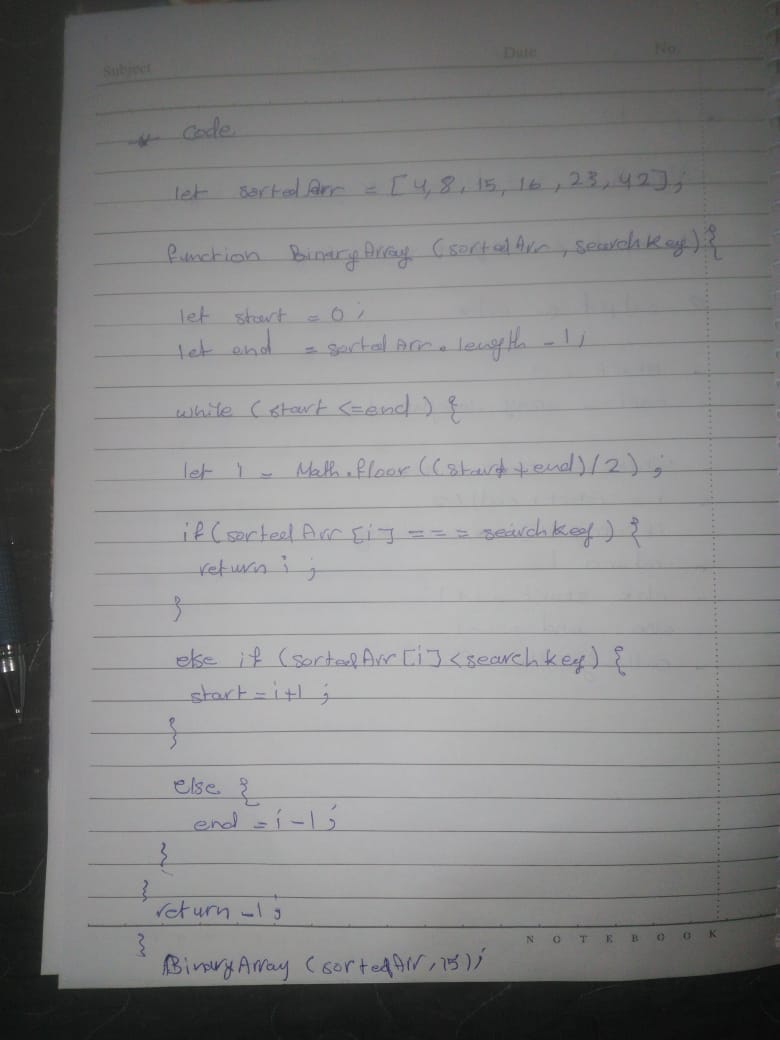 Subject Date No.
* Code
let sortedArr = [4, 8, 15, 16, 23, 42];
function BinaryArray (sortedArr, searchKey) {
let start = 0;
let end = sortedArr.length - 1;
while (start <= end) {
let i = Math.floor((start + end) / 2);
if (sortedArr [i] === searchKey) {
return i;
}
else if (sortedArr [i] < searchKey) {
start = i+1;
}
else {
end = i-1;
}
}
return -1;
NOTEBOOK
}
BinaryArray (sortedArr, 15);